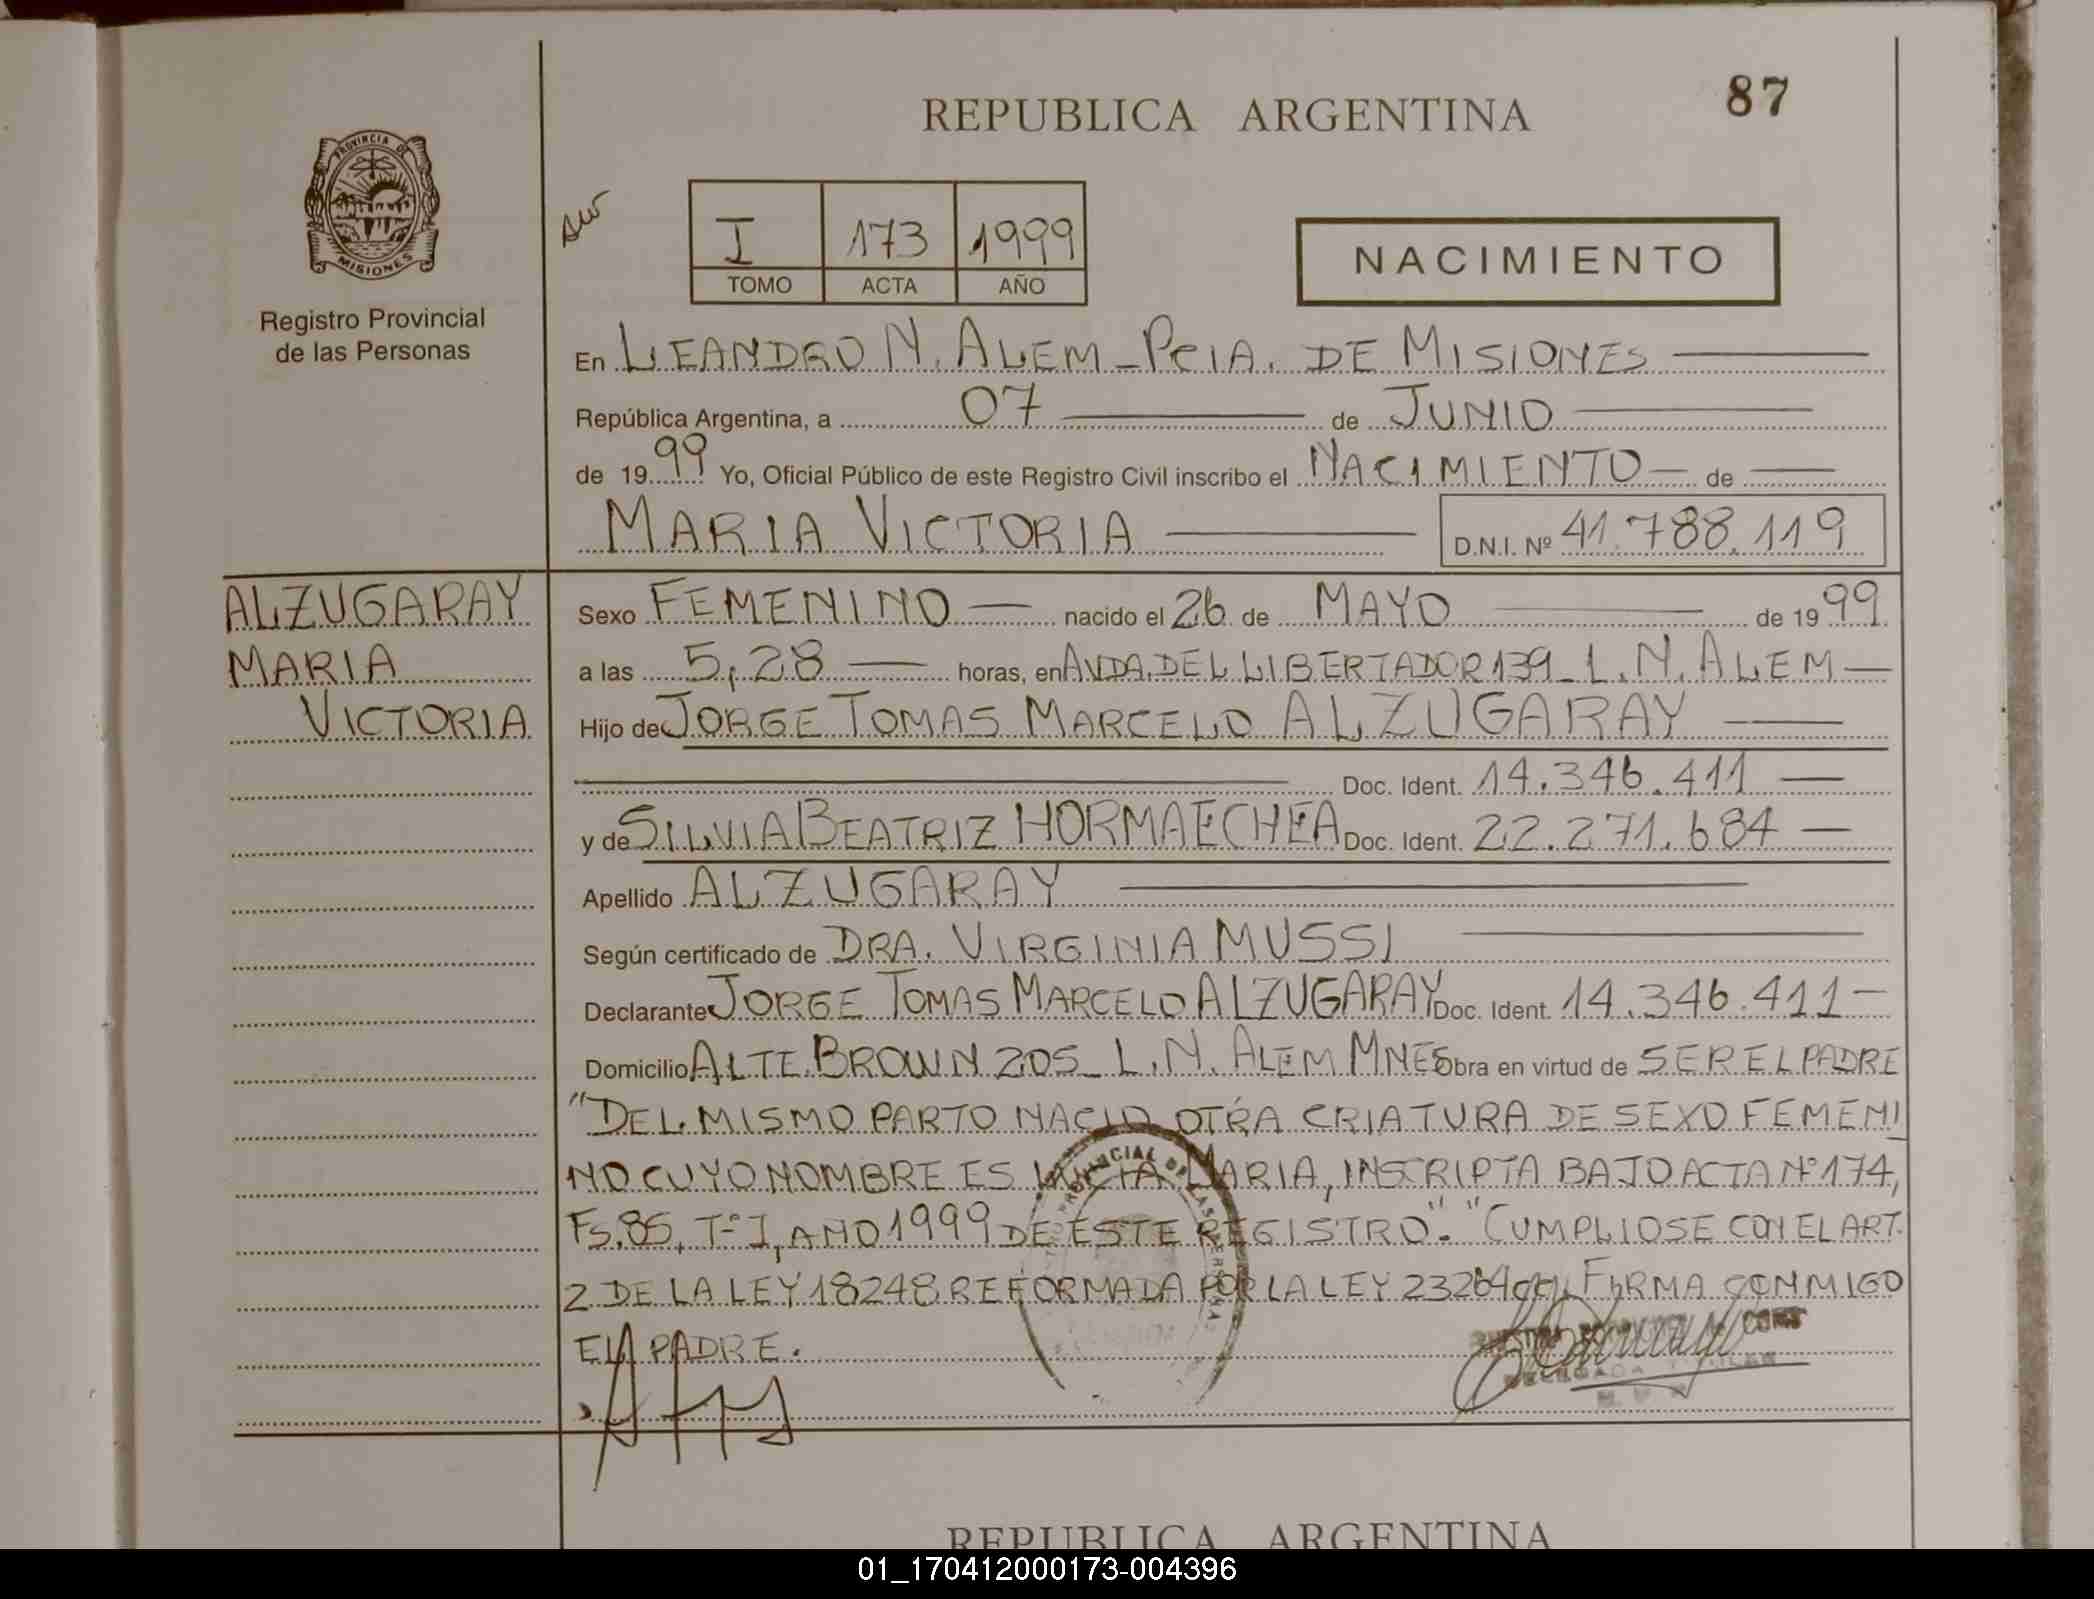 REPUBLICA ARGENTINA
87
PROVINCIA DE
MISIONES
Registro Provincial
de las Personas
I 173 1999
TOMO ACTA AÑO
NACIMIENTO
En LEANDRO N. ALEM - PCIA. DE MISIONES
República Argentina, a 07 de JUNIO
de 1999 Yo, Oficial Público de este Registro Civil inscribo el NACIMIENTO de
MARIA VICTORIA D.N.I. Nº 41.788.119
ALZUGARAY
MARIA
VICTORIA
Sexo FEMENINO nacido el 26 de MAYO de 1999
a las 5,28 horas, en AVDA. DEL LIBERTADOR 139 - L. N. ALEM
Hijo de JORGE TOMAS MARCELO ALZUGARAY
Doc. Ident. 14.346.411
y de SILVIA BEATRIZ HORMAECHEA Doc. Ident. 22.271.684
Apellido ALZUGARAY
Según certificado de DRA. VIRGINIA MUSSI
Declarante JORGE TOMAS MARCELO ALZUGARAY Doc. Ident. 14.346.411
Domicilio ALTE. BROWN 205 - L. N. ALEM MNES Obra en virtud de SER EL PADRE
"DEL MISMO PARTO NACIO OTRA CRIATURA DE SEXO FEMENI
NO CUYO NOMBRE ES LUCIA MARIA, INSCRIPTA BAJO ACTA Nº 174,
Fs. 85, Tº I, AÑO 1999 DE ESTE REGISTRO". "CUMPLIOSE CON EL ART.
2 DE LA LEY 18248 REFORMADA POR LA LEY 23264 FIRMA CONMIGO
EL PADRE.
PROVINCIAL DE LAS PERSONAS
REPUBLICA ARGENTINA
01_170412000173-004396